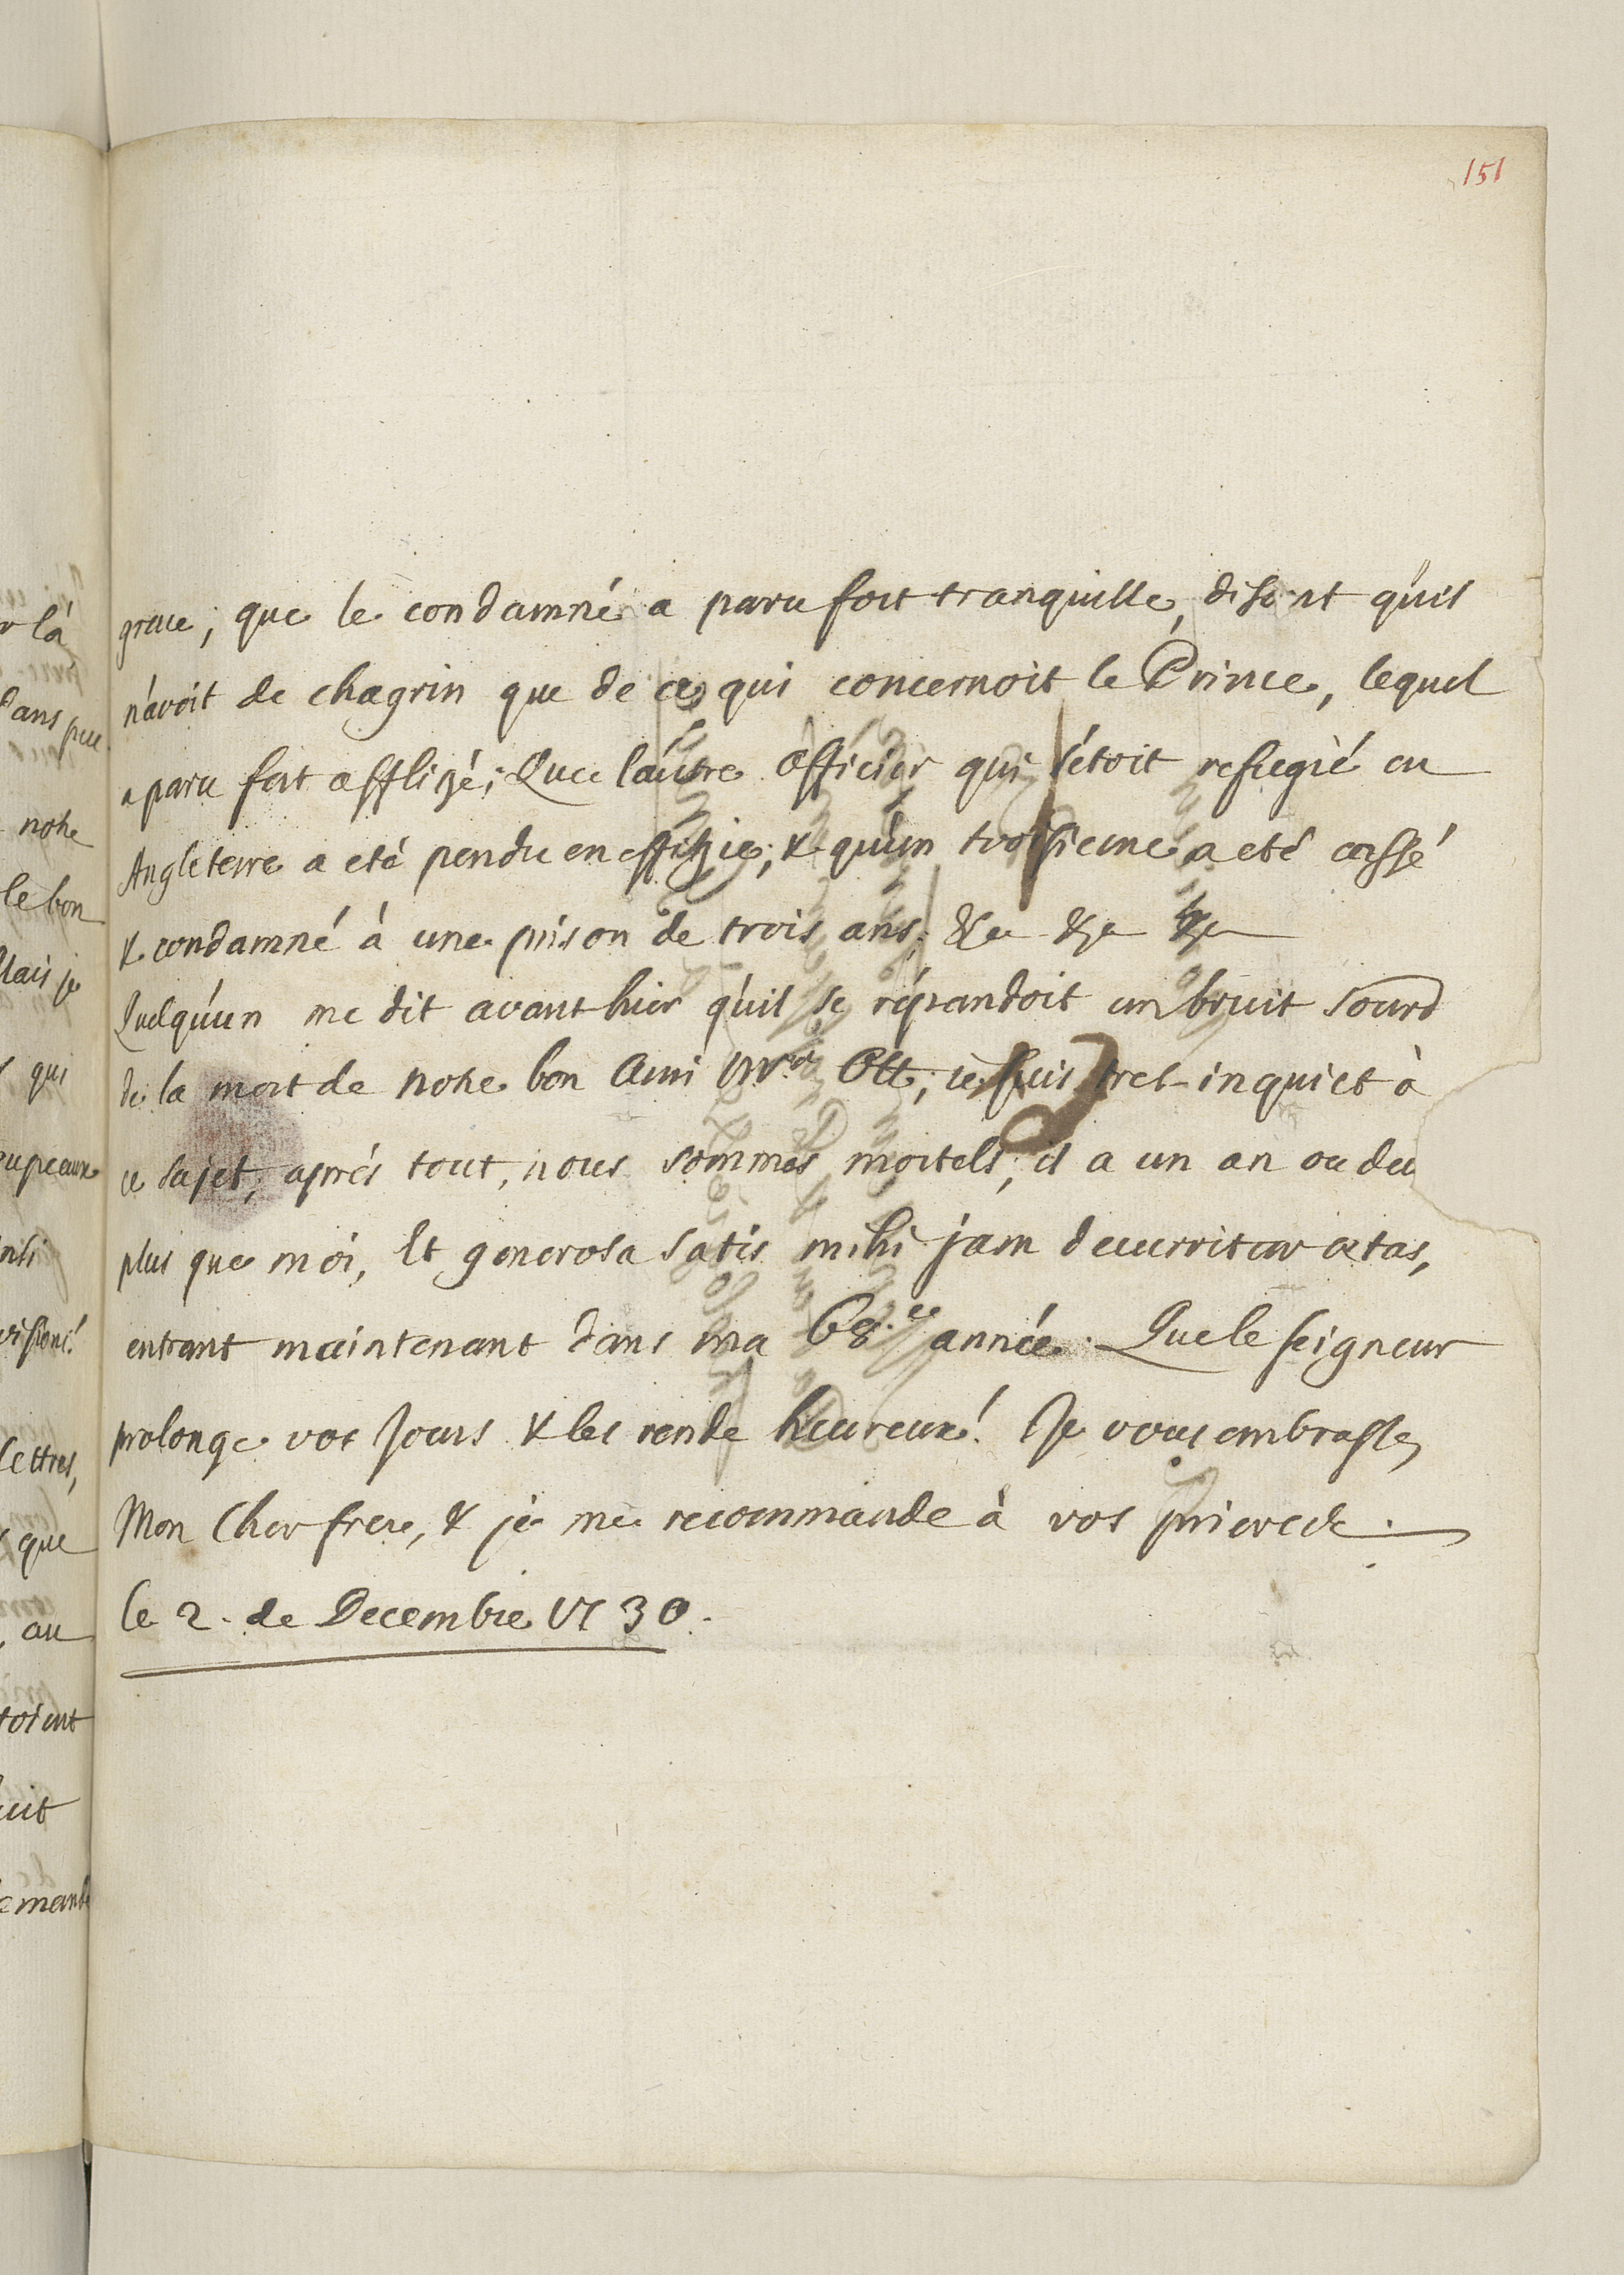 151
grace; que le condamné a paru fort tranquille, disant qu'il
n'avoit de chagrin que de ce qui concernoit le Prince, lequel
a paru fort affligé; Que l'autre officier qui s'étoit refugié en
Angleterre a eté pendu en effigie; & qu'un troisieme a eté cassé
& condamné à une prison de trois ans, &c &c &c
Quelqu'un me dit avant hier qu'il se répandoit un bruit sourd
de la mort de notre bon Ami Mr Ott; je suis tres-inquiet à
ce sujet, aprés tout, nous sommes mortels, il a un an ou deu
plus que moi, Et generosa satis mihi jam decurritur ætas,
entrant maintenant dans ma 68.e année. Que le Seigneur
prolonge vos Jours & les rende heureux! Je vous embrasse,
Mon Cher frere, & je me recommande à vos
le 2. de Decembre 1730.
là
dans peu
notre
le bon
Mais je
qui
lettres,
que
au